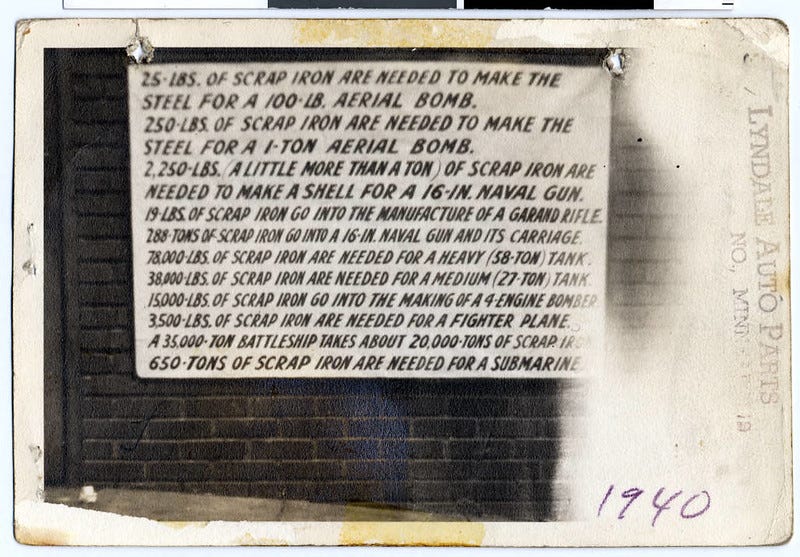 25-LBS. OF SCRAP IRON ARE NEEDED TO MAKE THE
STEEL FOR A 100-LB. AERIAL BOMB.
250-LBS. OF SCRAP IRON ARE NEEDED TO MAKE THE
STEEL FOR A 1-TON AERIAL BOMB.
2,250-LBS. (A LITTLE MORE THAN A TON) OF SCRAP IRON ARE
NEEDED TO MAKE A SHELL FOR A 16-IN. NAVAL GUN.
19-LBS. OF SCRAP IRON GO INTO THE MANUFACTURE OF A GARAND RIFLE.
288-TONS OF SCRAP IRON GO INTO A 16-IN. NAVAL GUN AND ITS CARRIAGE.
78,000-LBS. OF SCRAP IRON ARE NEEDED FOR A HEAVY (58-TON) TANK.
38,000-LBS. OF SCRAP IRON ARE NEEDED FOR A MEDIUM (27-TON) TANK.
15,000-LBS. OF SCRAP IRON GO INTO THE MAKING OF A 4-ENGINE BOMBER
3,500-LBS. OF SCRAP IRON ARE NEEDED FOR A FIGHTER PLANE.
A 35,000-TON BATTLESHIP TAKES ABOUT 20,000-TONS OF SCRAP IRON
650-TONS OF SCRAP IRON ARE NEEDED FOR A SUBMARINE.
LYNDALE AUTO PARTS
NO.
1940